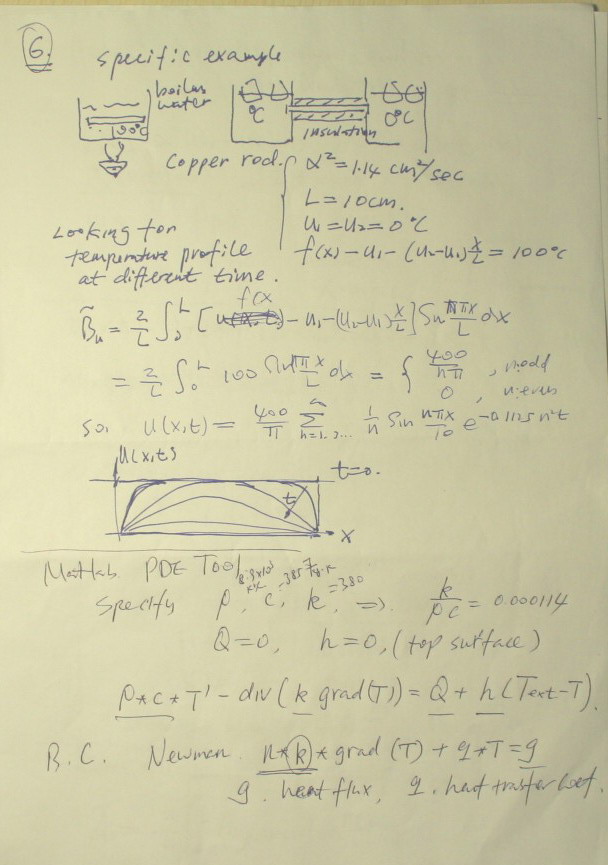 6.
specific example
boiled water
100°C
°C
0°C
insulation
Copper rod.
α² = 1.14 cm²/sec
L = 10cm.
u₁ = u₂ = 0°C
f(x) - u₁ - (u₂-u₁) x/L = 100°C
Looking for
temperature profile
at different time.
B̃n = 2/L ∫₀ᴸ [ f(x - u₁ - (u₂-u₁) x/L ] Sin nπx/L dx
= 2/L ∫₀ᴸ 100 Sin nπx/L dx = { 400/nπ , n odd
0 , n even
so, u(x,t) = 400/π Σ n=1, 3... 1/n Sin nπx/10 e^-0.1125 n²t
u(x,t)
t=0.
t
x
Matlab PDE Tool
8.9x10³ =385 =380
Specify ρ, c, k, ⇒ k/ρc = 0.000114
Q=0, h=0, (top surface)
ρ*c*T' - div(k grad(T)) = Q + h(Text-T).
B.C. Newman n*k*grad(T) + q*T = g
g. heat flux, q. heat transfer coef.